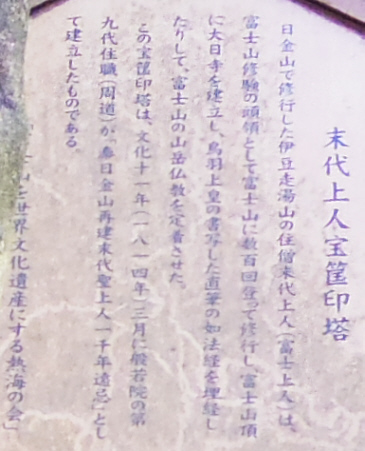 末代上人宝筐印塔
日金山で修行した伊豆走湯山の住僧末代上人(富士上人)は、
富士山修験の頭領として富士山に数百回登って修行し、富士山頂
に大日寺を建立し、鳥羽上皇の書写した直筆の如法経を埋経し
たりして、富士山の山岳仏教を定着させた。
この宝筐印塔は、文化十一年(一八一四年)三月に般若院の第
九代住職(周道)が「奉日金山再建末代聖上人一千年遠忌」とし
て建立したものである。
世界文化遺産にする熱海の会」